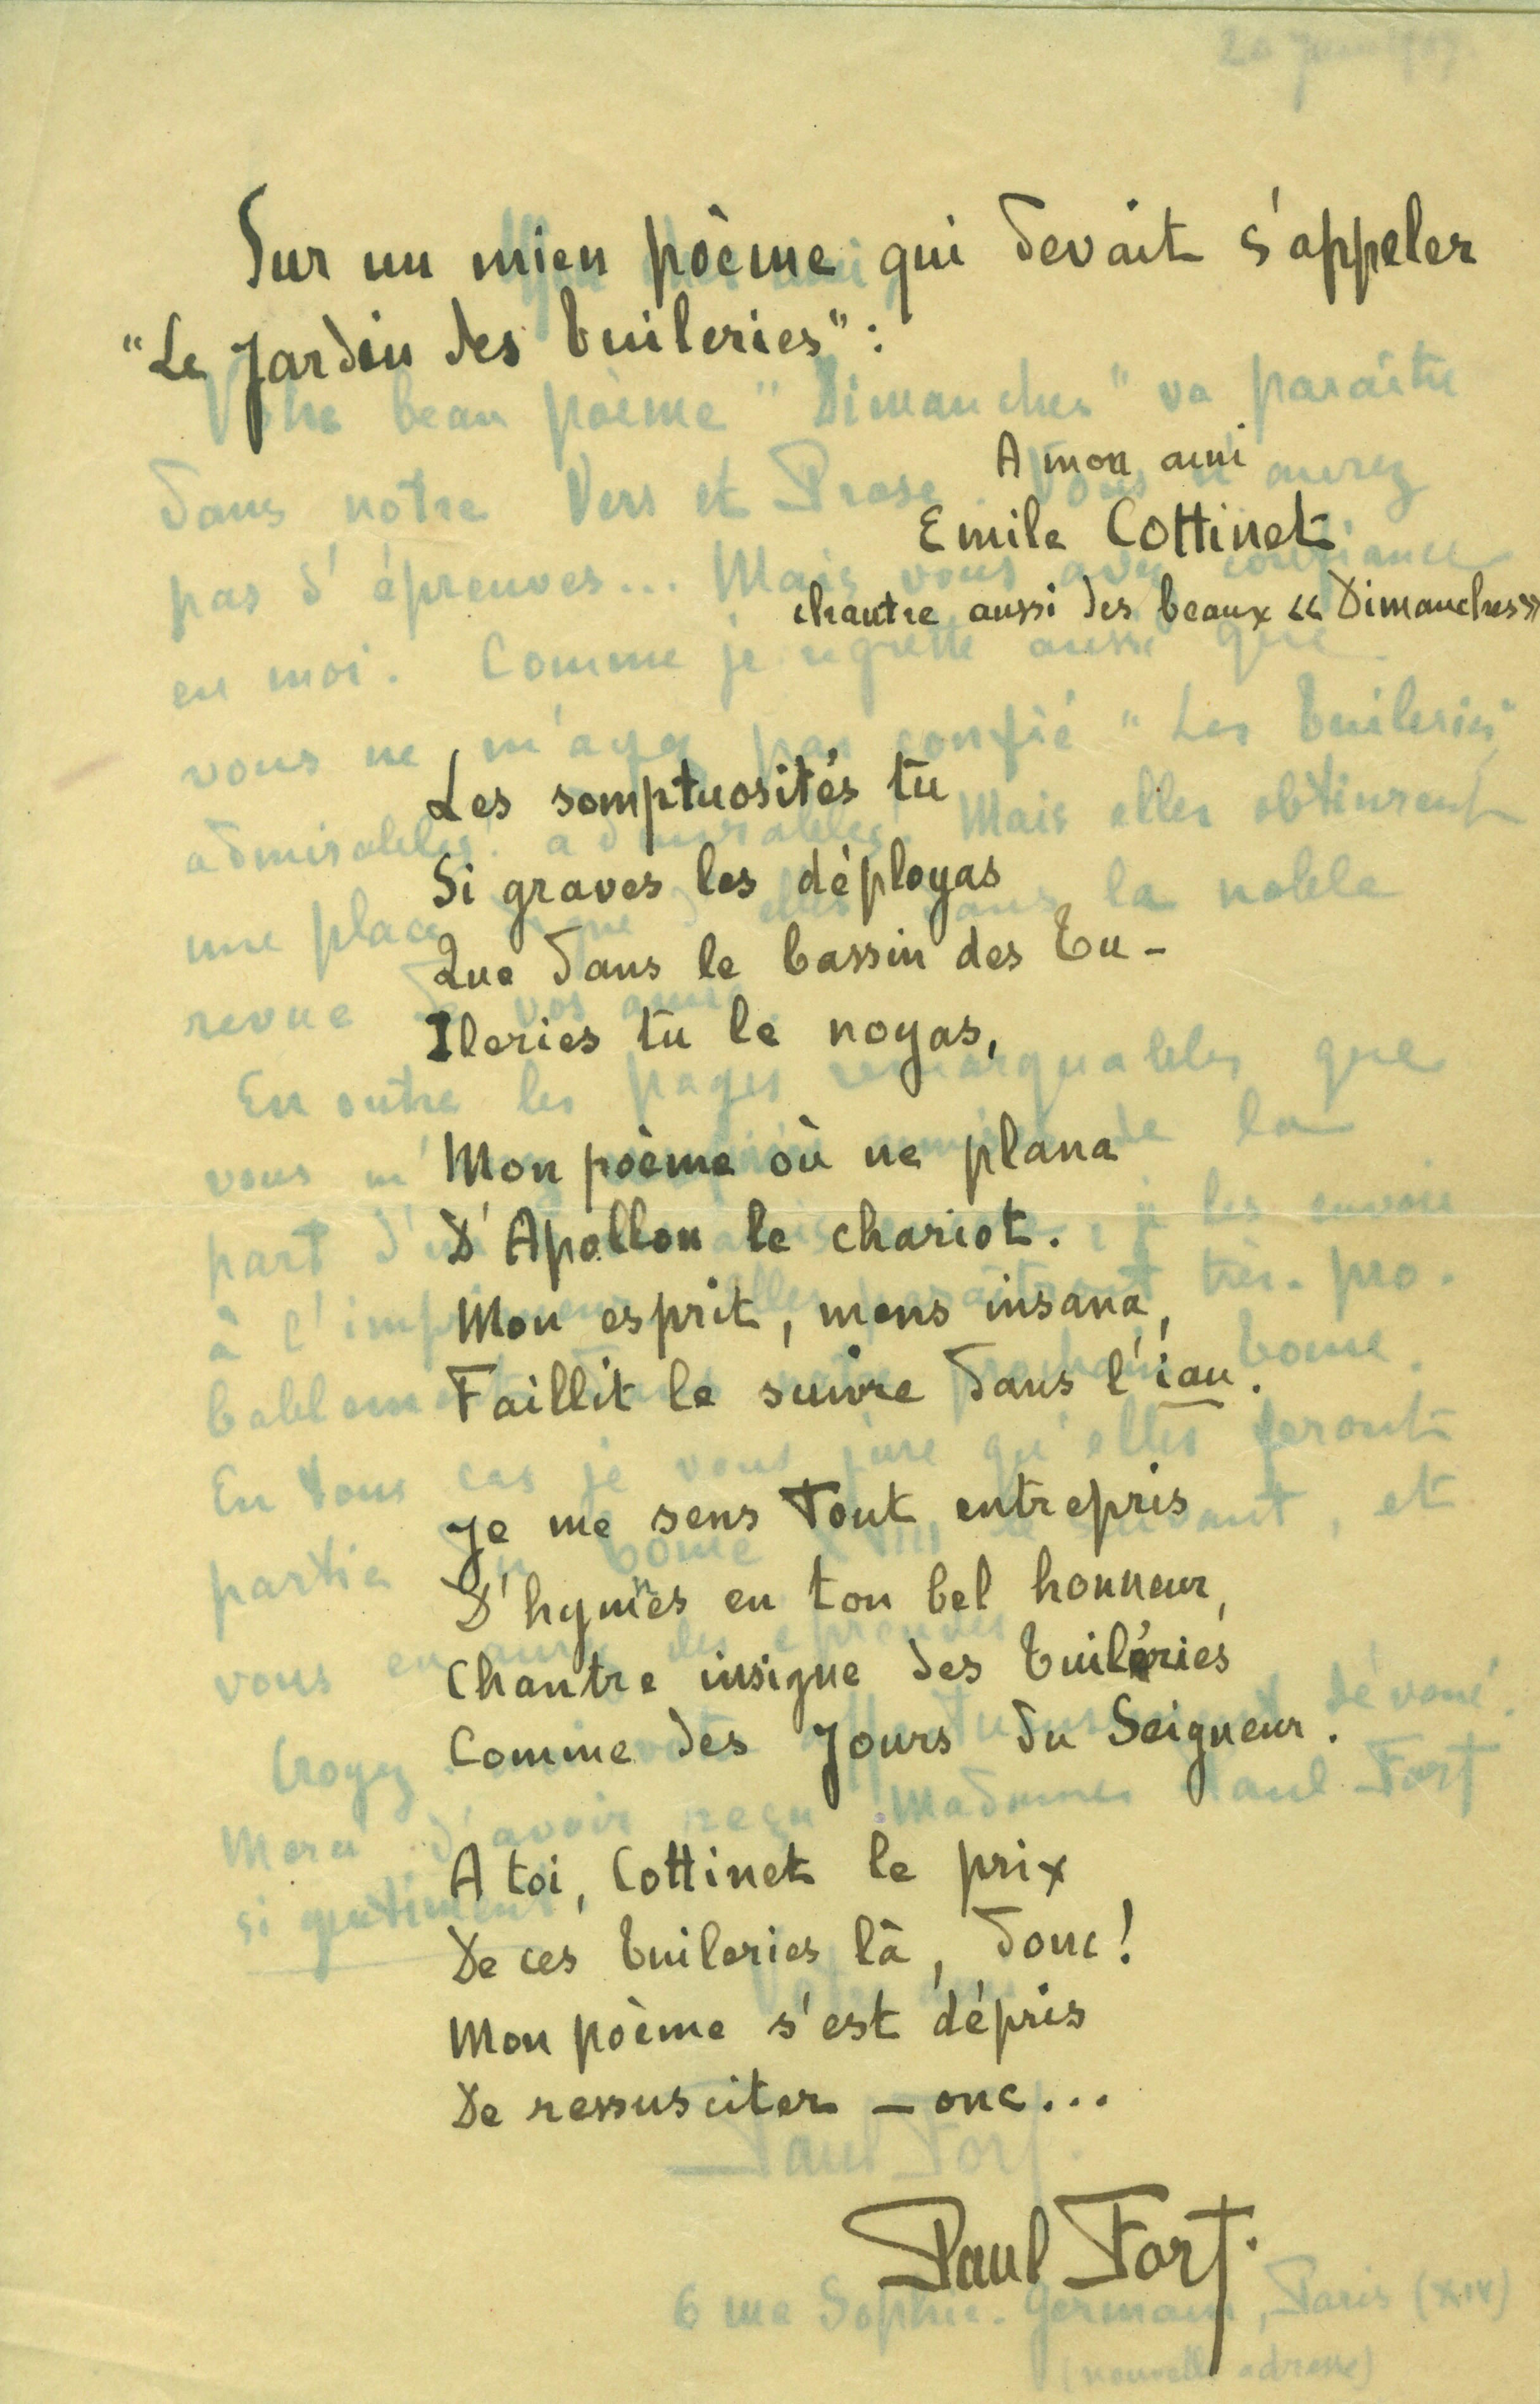 Sur un mien poème qui devait s'appeler
"Le Jardin des Tuileries":
A mon ami
Emile Cottinet
chantre aussi des beaux « Dimanches »
Les somptuosités tu
Si graves les déployas
Que dans le bassin des Tu-
Ileries tu le noyas,
Mon poème où ne plana
D'Apollon le chariot.
Mon esprit, mens insana,
Faillit le suivre dans l'iau.
Je me sens tout entrepris
D'hymnes en ton bel honneur,
Chantre insigne des Tuileries
Comme des Jours du Seigneur.
A toi, Cottinet le prix
De ces Tuileries là, donc!
Mon poème s'est dépris
De ressusciter – onc...
Paul Fort.
20 Juin
Votre beau poème "Dimanches" va paraître
dans notre Vers et Prose. Vous n'aurez
pas d'épreuves... Mais vous avez confiance
en moi. Comme je regrette aussi que
vous ne m'ayez pas confié "Les Tuileries"
admirables! admirables! Mais elles obtinrent
une place digne d'elles dans la noble
revue de vos amis.
En outre les pages remarquables que
vous m' de la
part d'un je les envoie
à l'imprimeur elles paraîtront très-pro-
bablement dans notre prochain tome.
En tous cas je vous jure qu'elles feront
partie du tome XVIII le suivant, et
vous en aurez des épreuves
Croyez dévoué.
Merci d'avoir reçu Madame Paul Fort
si gentiment.
Paul Fort.
6 rue Sophie-Germain, Paris (XIV)
(nouvelle adresse)